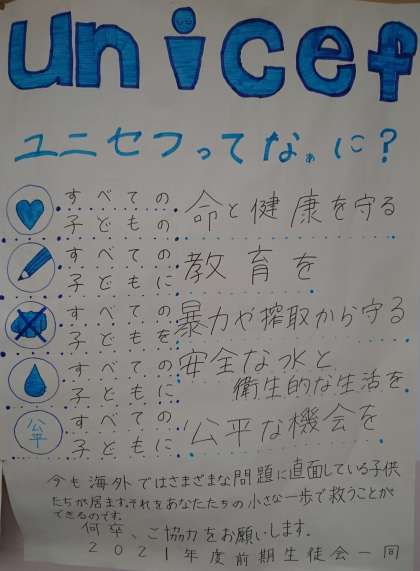 unicef
ユニセフってなぁに?
すべての
子どもの
命と健康を守る
すべての
子どもに
教育を
すべての
子どもを
暴力や搾取から守る
すべての
子どもに
安全な水と
衛生的な生活を
公平
すべての
子どもに
公平な機会を
今も海外ではさまざまな問題に直面している子供
たちが居ます。それをあなたたちの小さな一歩で救うことが
できるのです。
何卒、ご協力をお願いします。
2021年度前期生徒会一同